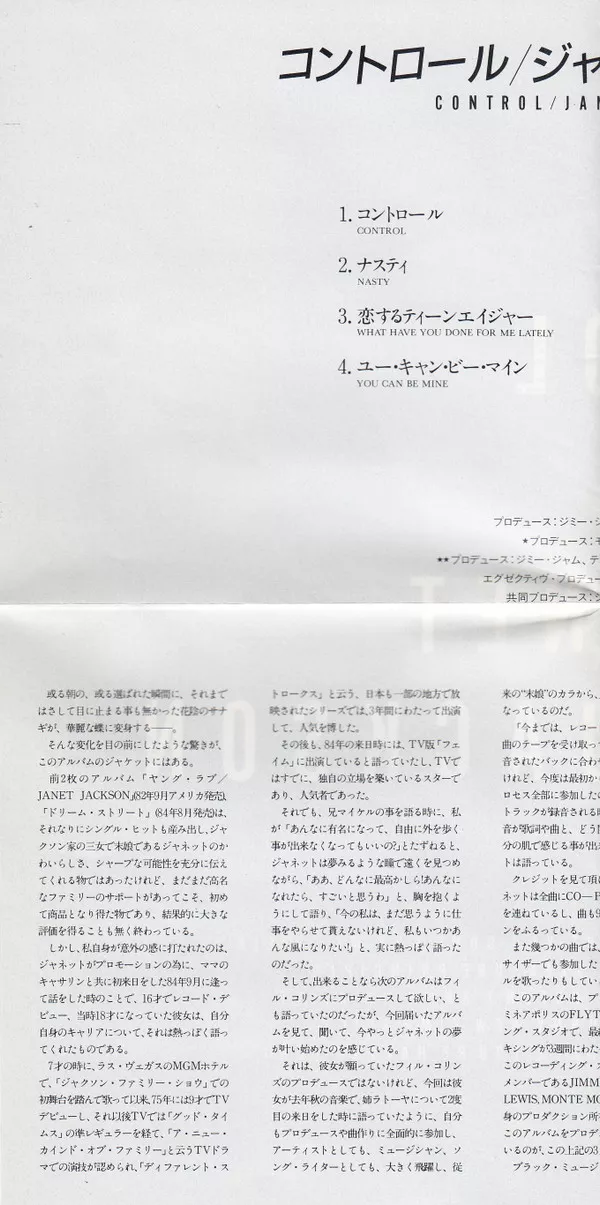 コントロール/ジャ
CONTROL/JAN
1. コントロール
CONTROL
2. ナスティ
NASTY
3. 恋するティーンエイジャー
WHAT HAVE YOU DONE FOR ME LATELY
4. ユー・キャン・ビー・マイン
YOU CAN BE MINE
プロデュース：ジミー・ジ
★プロデュース：モ
★★プロデュース：ジミー・ジャム、テ
エグゼクティヴ・プロデュー
共同プロデュース：ジ
或る朝の、或る選ばれた瞬間に、それまで
はさして目に止まる事も無かった花陰のサナ
ギが、華麗な蝶に変身する――。
そんな変化を目の前にしたような驚きが、
このアルバムのジャケットにはある。
前2枚のアルバム「ヤング・ラブ／
JANET JACKSON」(82年9月アメリカ発売)、
「ドリーム・ストリート」(84年8月発売)は、
それなりにシングル・ヒットも産み出し、ジャ
クソン家の三女で末娘であるジャネットのか
わいらしさ、シャープな可能性を充分に伝え
てくれる物ではあったけれど、まだまだ高名
なファミリーのサポートがあってこそ、初め
て商品となり得た物であり、結果的に大きな
評価を得ることも無く終わっている。
しかし、私自身が意外の感に打たれたのは、
ジャネットがプロモーションの為に、ママの
キャサリンと共に初来日をした84年9月に逢っ
て話をした時のことで、16才でレコード・デ
ビュー、当時18才になっていた彼女は、自分
自身のキャリアについて、それは熱っぽく語っ
てくれたものである。
7才の時に、ラス・ヴェガスのMGMホテル
で、「ジャクソン・ファミリー・ショウ」での
初舞台を踏んで歌って以来、75年には9才でTV
デビューし、それ以後TVでは「グッド・タイ
ムス」の準レギュラーを経て、「ア・ニュー・
カインド・オブ・ファミリー」と云うTVドラ
マでの演技が認められ、「ディファレント・ス
トロークス」と云う、日本も一部の地方で放
映されたシリーズでは、3年間にわたって出演
して、人気を博した。
その後も、84年の来日時には、TV版「フェ
イム」に出演していると語っていたし、TVで
はすでに、独自の立場を築いているスターで
あり、人気者であった。
それでも、兄マイケルの事を語る時に、私
が「あんなに有名になって、自由に外を歩く
事が出来なくなってもいいの?」とたずねると、
ジャネットは夢みるような瞳で遠くを見つめ
ながら、「ああ、どんなに最高かしら!あんなに
なれたら、すごいと思うわ」と、胸を抱くよ
うにして語り、「今の私は、まだ思うように仕
事をやらせて貰えないけれど、私もいつかあ
んな風になりたい!」と、実に熱っぽく語った
のだった。
そして、出来ることなら次のアルバムはフィ
ル・コリンズにプロデュースして欲しい、と
も語っていたのだったが、今回届いたアルバ
ムを見て、聞いて、今やっとジャネットの夢
が叶い始めたのを感じている。
それは、彼女が願っていたフィル・コリン
ズのプロデュースではないけれど、今回は彼
女が去年秋の音楽で、姉ラトーヤについて2度
目の来日をした時に語っていたように、自分
もプロデュースや曲作りに全面的に参加し、
アーティストとしても、ミュージシャン、ソ
ング・ライターとしても、大きく飛躍し、従
来の"末娘"のカラから、
なっているのだ。
「今までは、レコー
曲のテープを受け取っ
音されたバックに合わせ
けれど、今度は最初か
ロセス全部に参加したの
トラックが録音される時
音が歌詞や曲と、どう
分の肌で感じる事が出
トは語っている。
クレジットを見て頂
ネットは全曲にCO―P
を連ねているし、曲も9
ンをふるっている。
また幾つかの曲では、
サイザーでも参加した
ルを歌ったりもしてい
このアルバムは、プ
ミネアポリスのFLYT
ング・スタジオで、最
キシングが3週間にわた
このレコーディング・ス
メンバーであるJIMM
LEWIS、MONTE MO
身のプロダクション所
このアルバムをプロデ
いるのが、この上記の3
ブラック・ミュージ